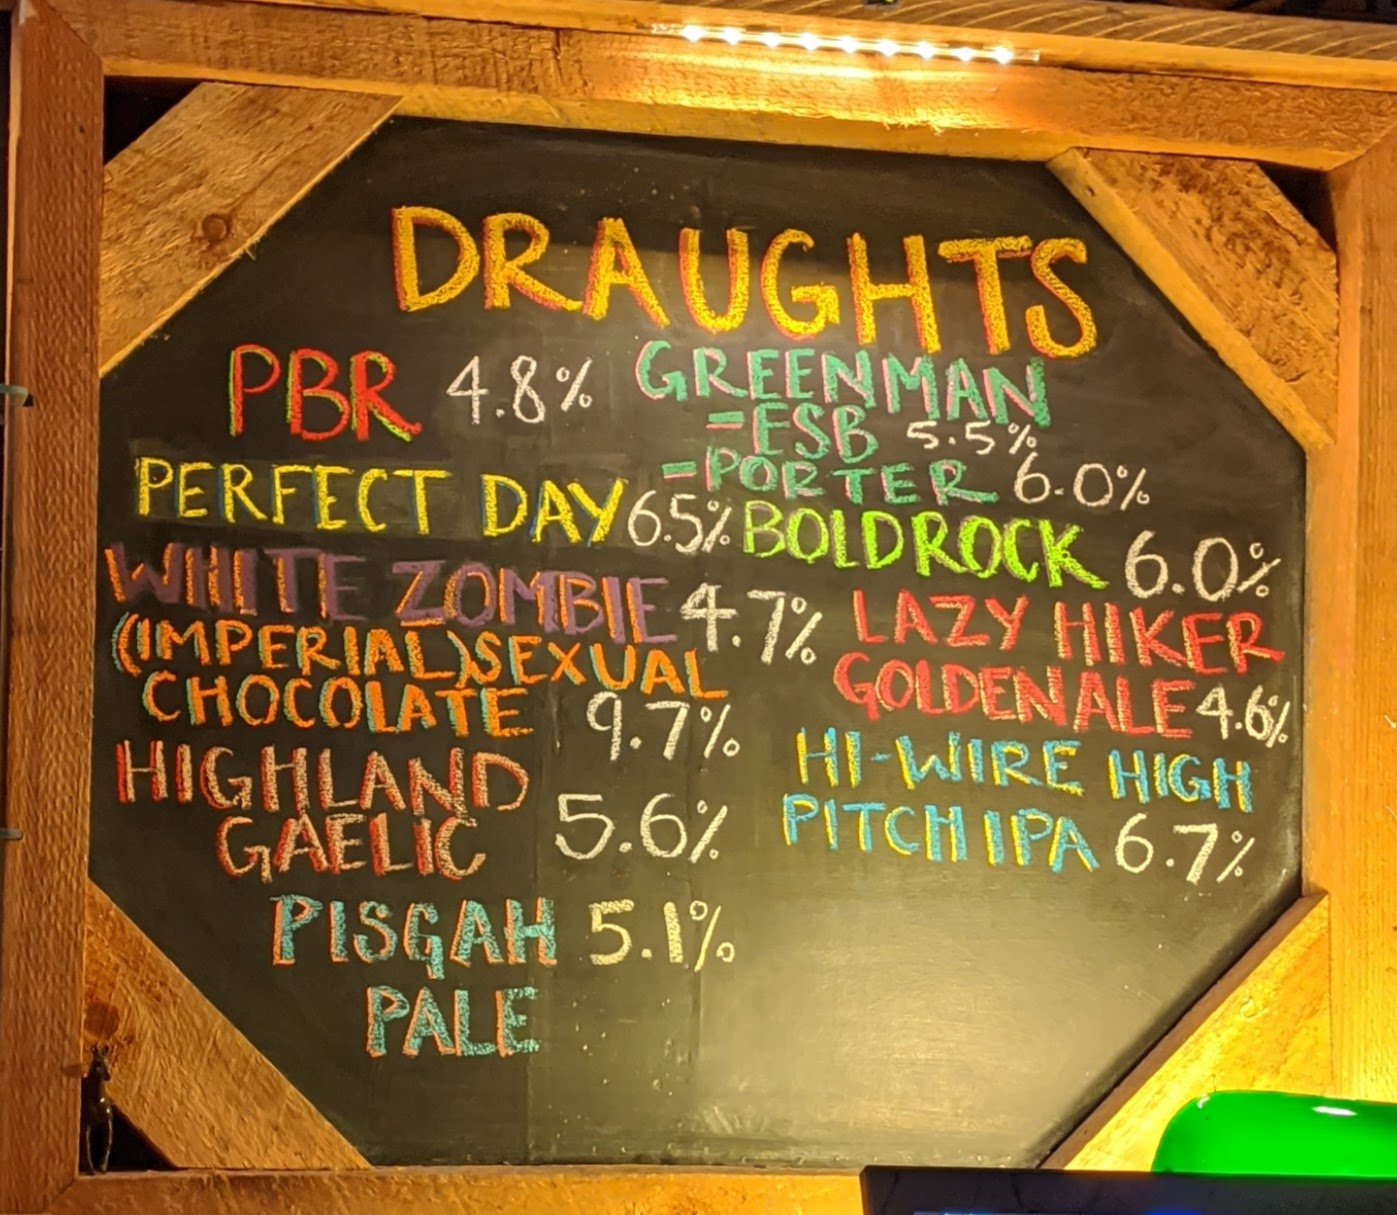 DRAUGHTS
PBR 4.8%
PERFECT DAY 6.5%
WHITE ZOMBIE 4.7%
(IMPERIAL) SEXUAL
CHOCOLATE 9.7%
HIGHLAND
GAELIC 5.6%
PISGAH 5.1%
PALE
GREENMAN
-ESB 5.5%
-PORTER 6.0%
BOLDROCK 6.0%
LAZY HIKER
GOLDEN ALE 4.6%
HI-WIRE HIGH
PITCH IPA 6.7%